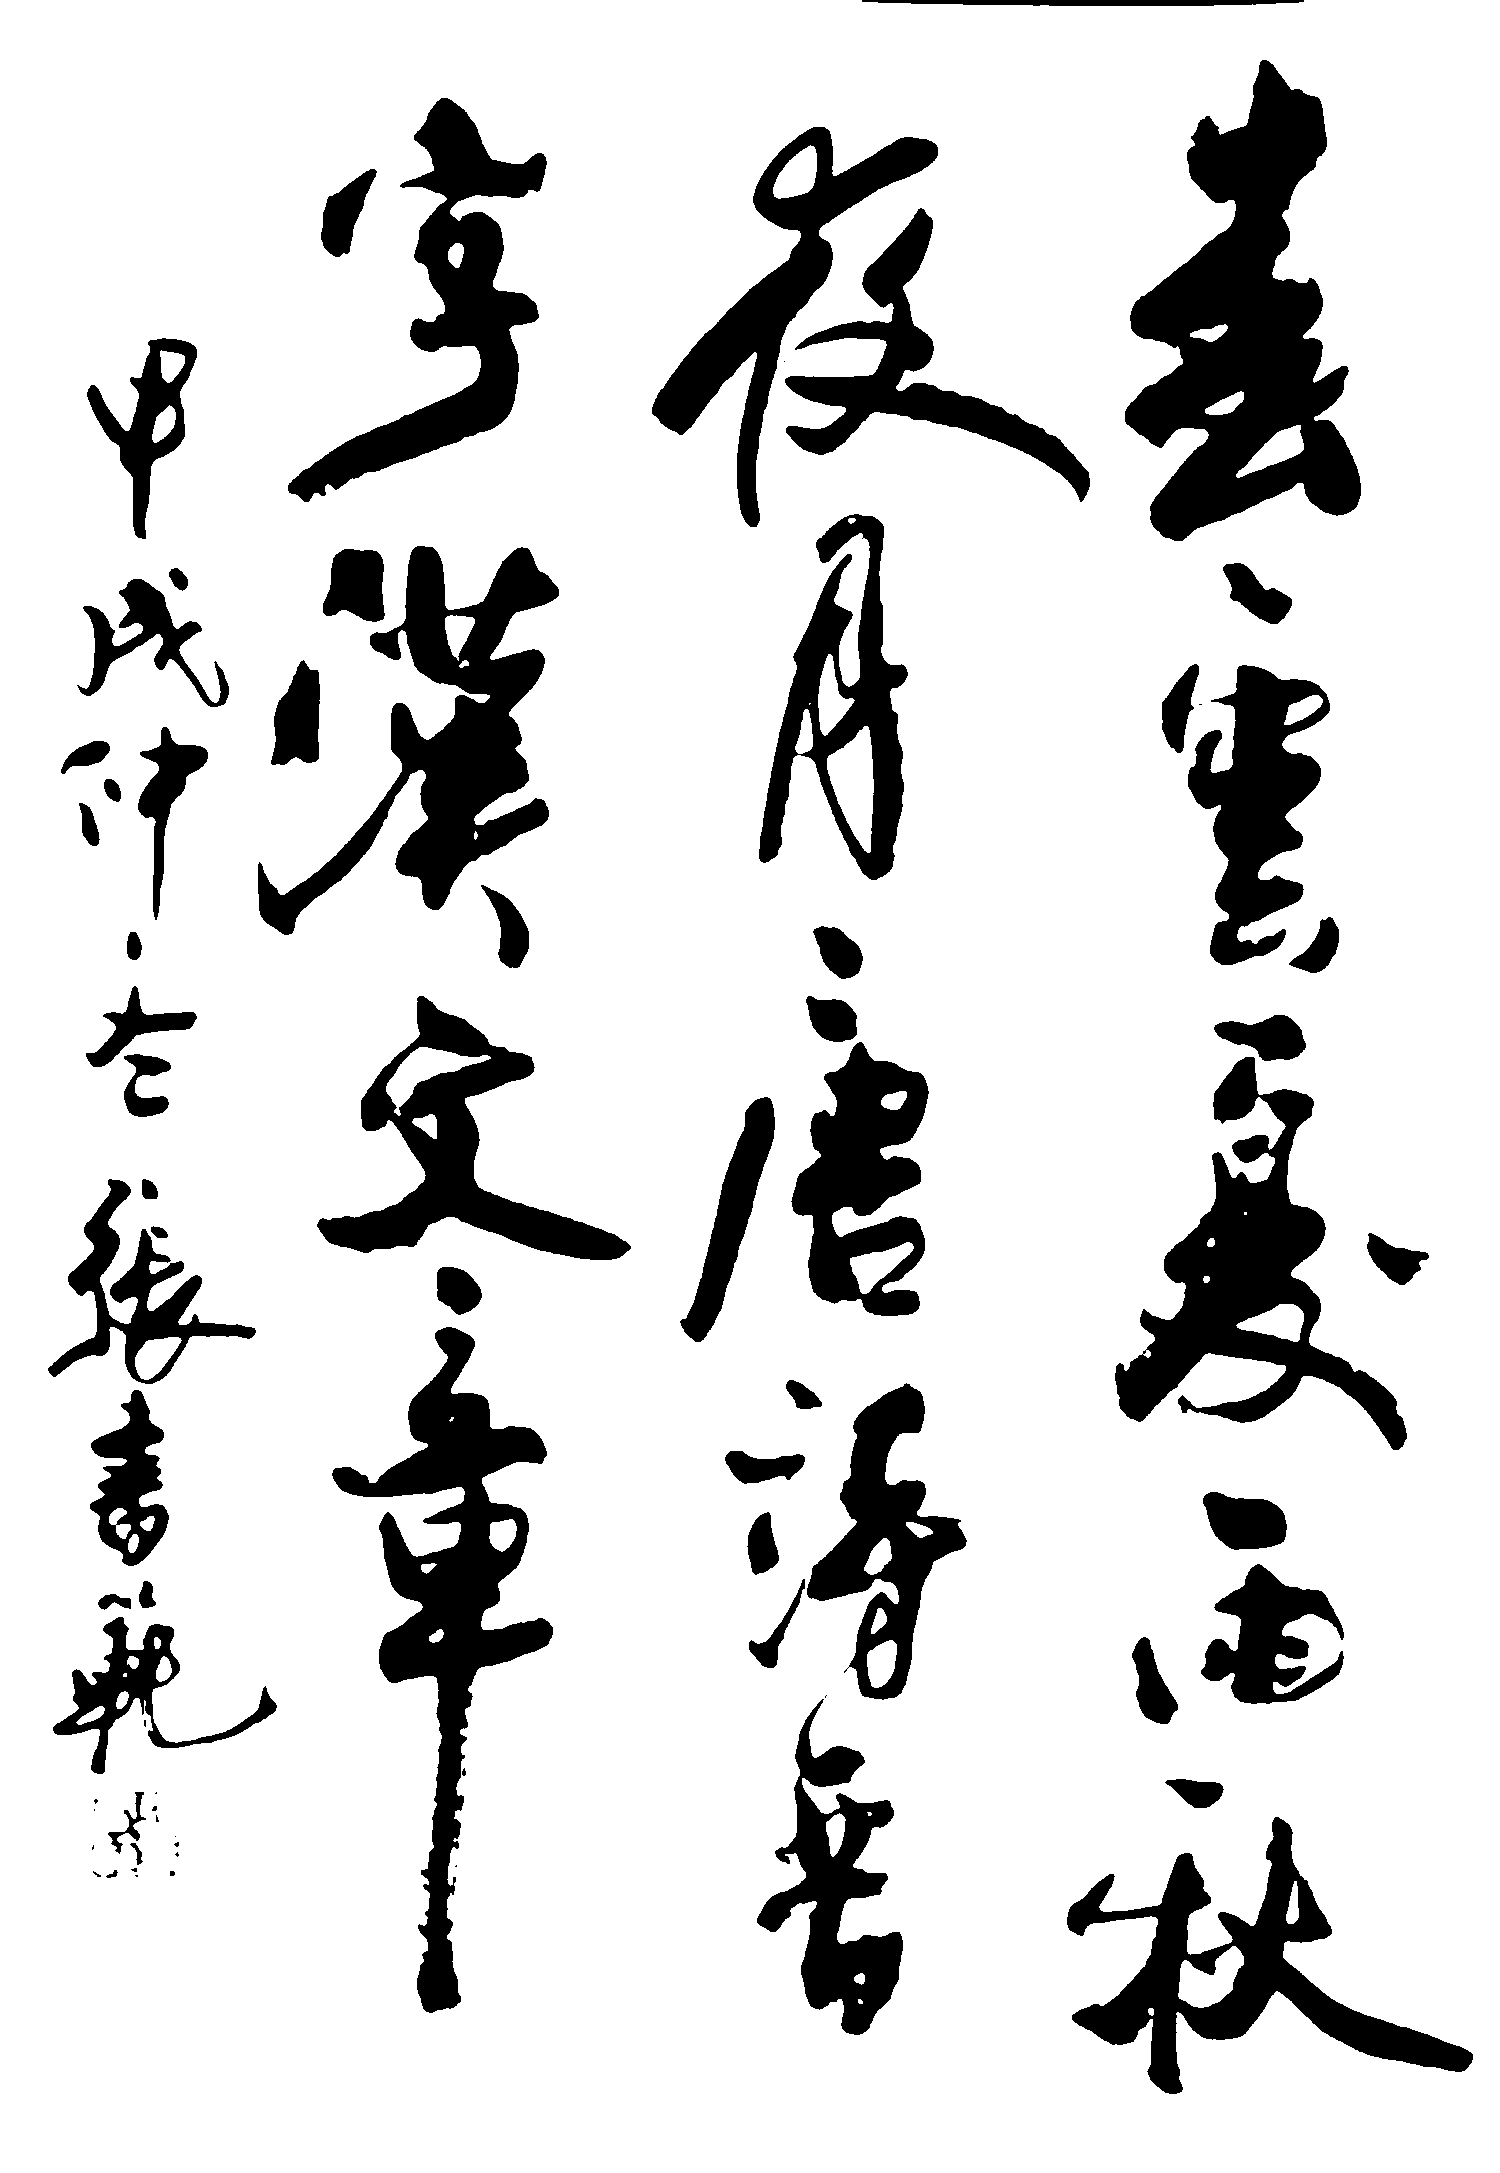 春雲夏雨秋
夜月唐詩晉
字漢文章
甲戌仲 張書範